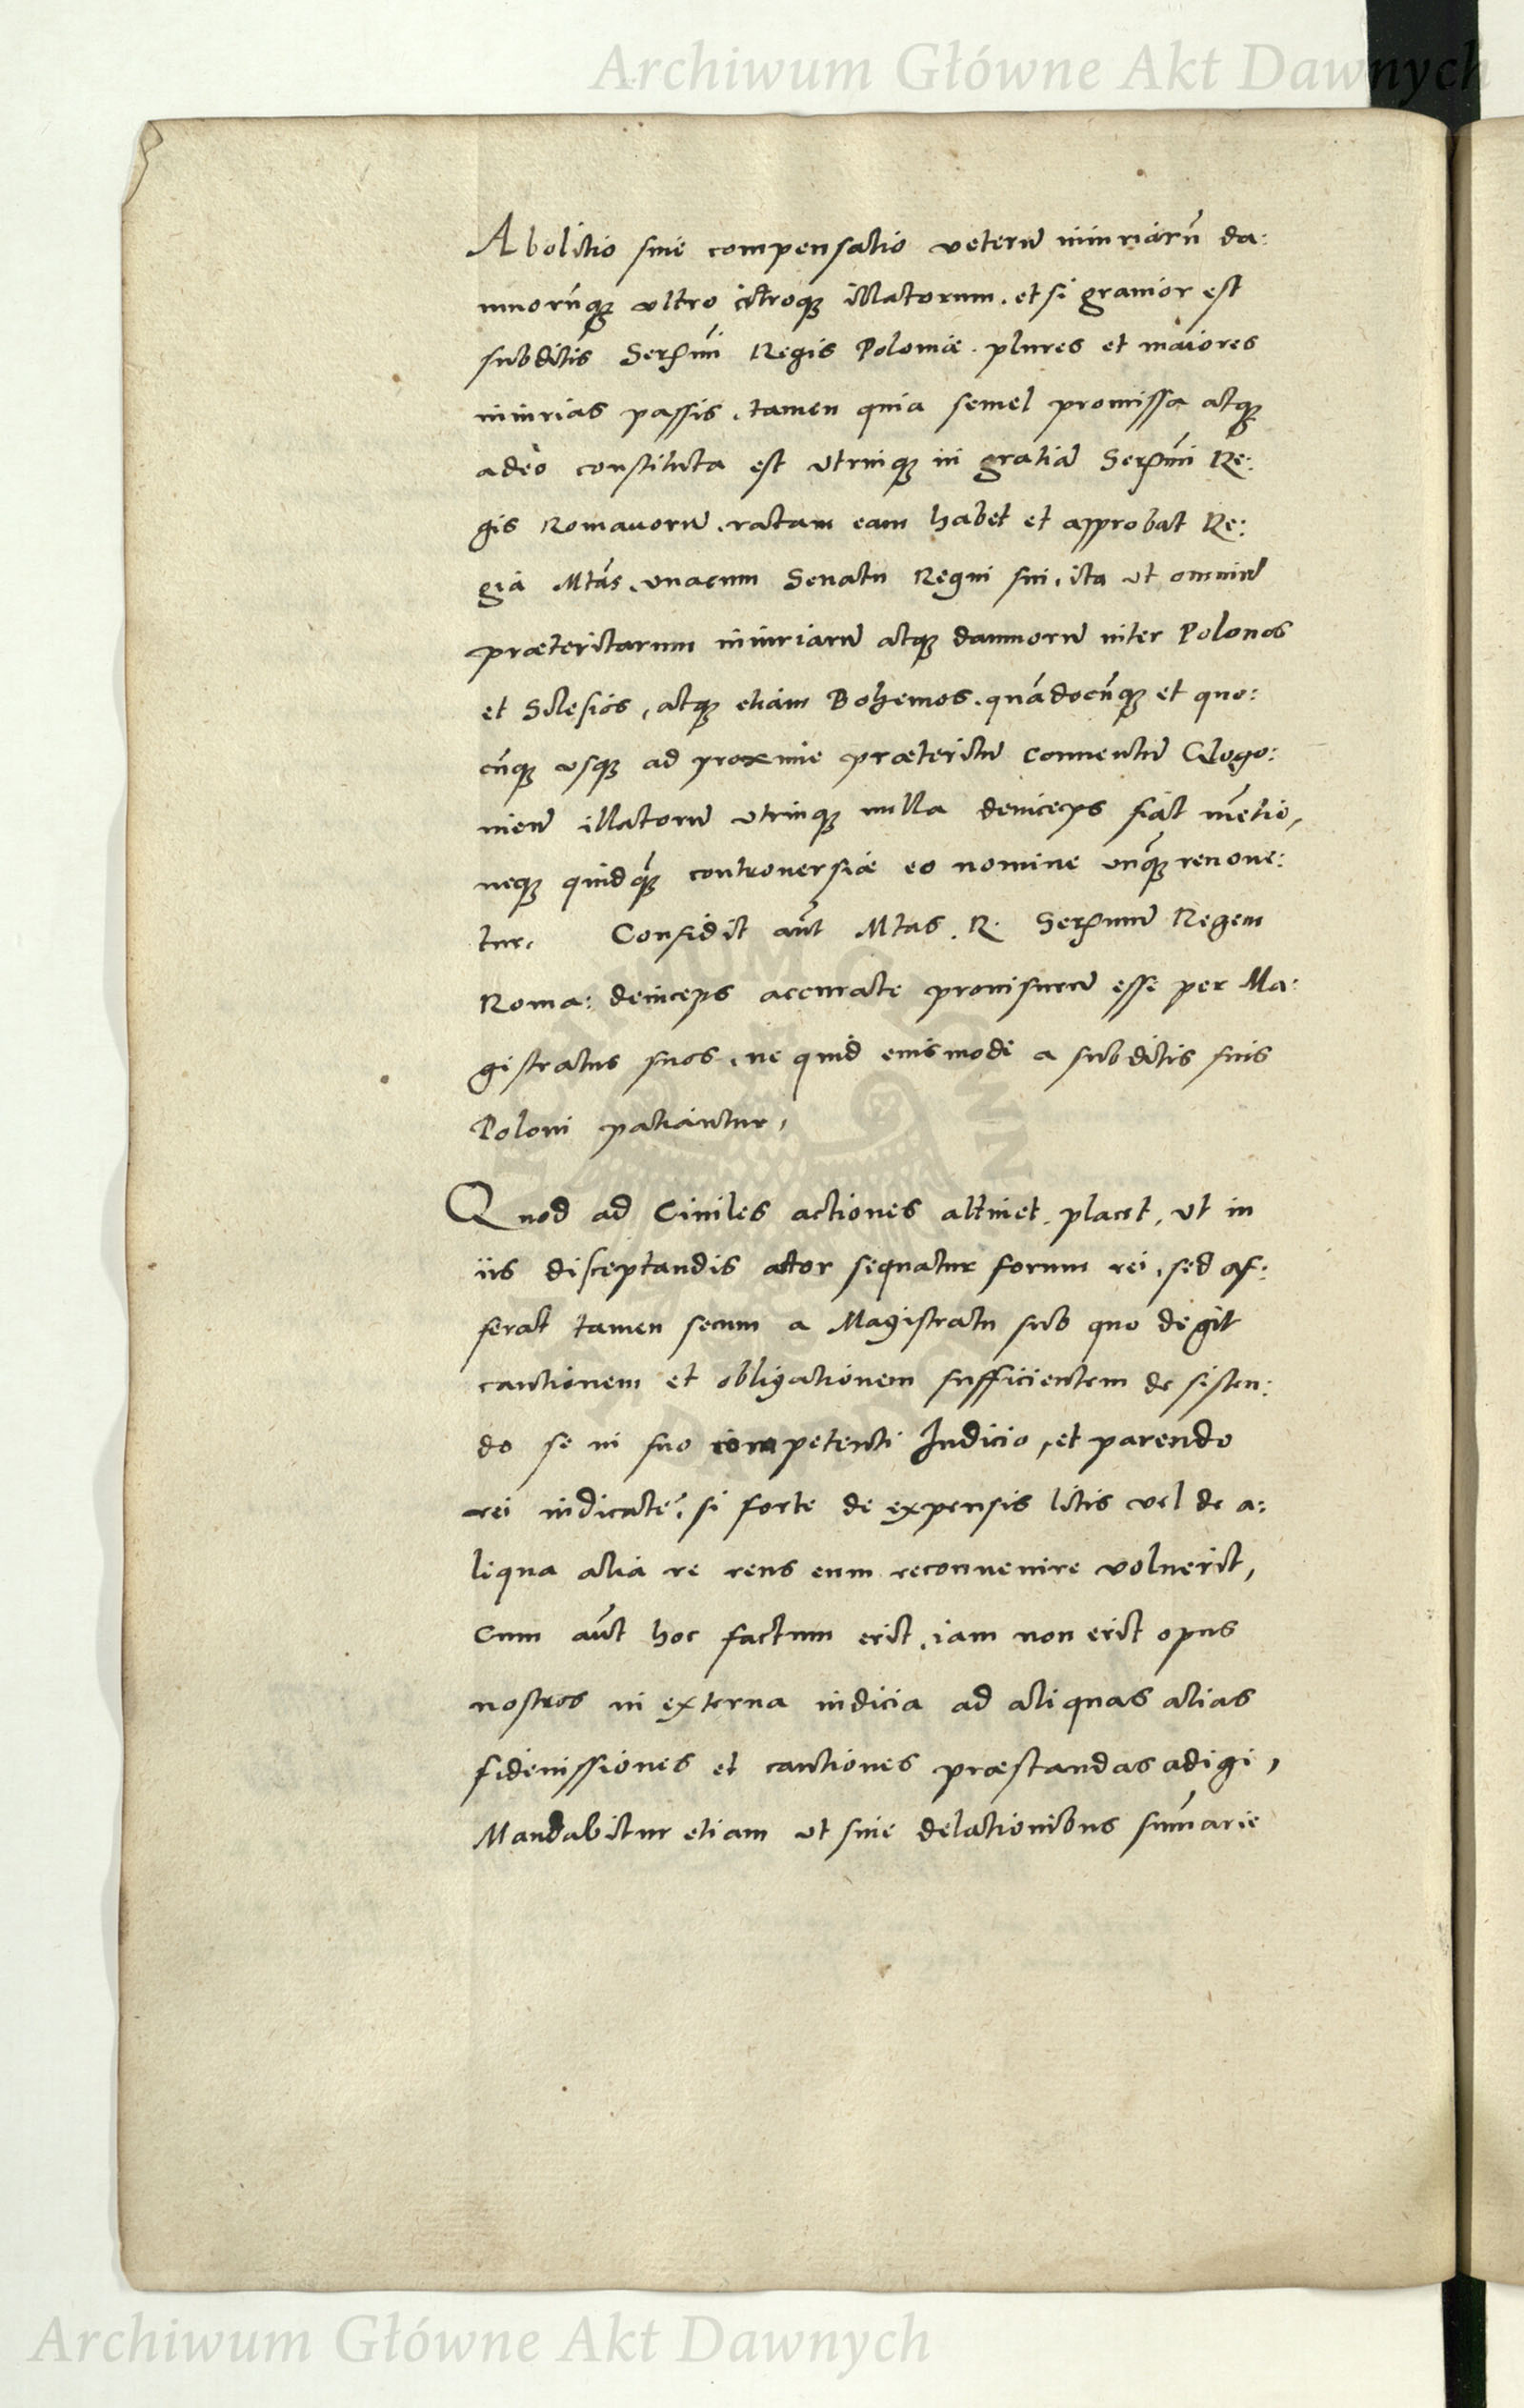 Archiwum Główne Akt Dawnych
Abolitio siue compensatio veterū iniuriarū da:
mnorūq; vltro citroq; illatorum. et si grauior est
subditis Serʳᵐⁱ Regis Poloniæ. plures et maiores
iniurias passis, tamen quia semel promissa atq;
adeo constituta est vtrinq; in gratiā Serʳᵐⁱ Re:
gis Romanorū, ratam eam habet et approbat Re:
gia Mtās, vnacum Senatu Regni sui, ita vt omniū
præteritarum iniuriarū atq; damnorū inter Polonos
et Silesios, atq; etiam Bohemos, quādocūq; et quo:
cūq; vsq; ad proxime præteritū conuentū Glogo:
uien̄ illatorū vtrinq; nulla deinceps fiat mētio,
neq; quidq̃ controuersiæ eo nomine vnq̃ renoue:
tur. Confidit aūt Mtas. R. Serʳᵐū Regem
Roma: deinceps accurate prouisurū esse per Ma:
gistratus suos, ne quid eiusmodi a subditis suis
Poloni patiantur,
Quod ad Ciuiles actiones attinet, placet, vt in
iis disceptandis actor sequatur forum rei, sed af:
ferat tamen secum a Magistratu sub quo degit
cautionem et obligationem sufficientem de sisten:
do se in suo competenti Iudicio, et parendo
rei iudicatę, si forte de expensis litis vel de a:
liqua alia re reus eum reconuenire voluerit,
Cum aūt hoc factum erit, iam non erit opus
nostros in externa iudicia ad aliquas alias
fideiussiones et cautiones præstandas adigi,
Mandabitur etiam vt sine delationibus sum̄arie
Archiwum Główne Akt Dawnych